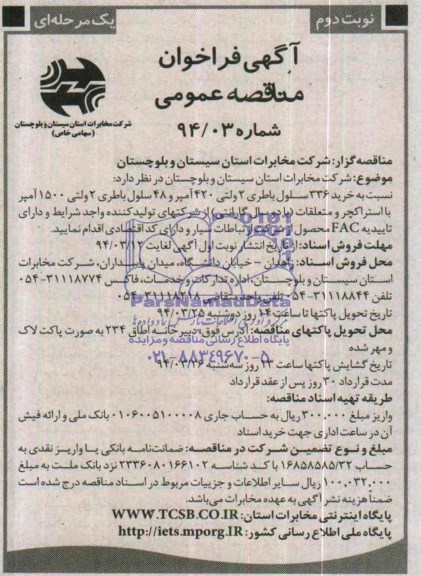 نوبت دوم
یک مرحله‌ای
آگهی فراخوان
مناقصه عمومی
شماره ۹۴/۰۳
شرکت مخابرات استان سیستان و بلوچستان
(سهامی خاص)
مناقصه گزار: شرکت مخابرات استان سیستان و بلوچستان
موضوع: شرکت مخابرات استان سیستان و بلوچستان در نظر دارد:
نسبت به خرید ۳۳۶ سلول باطری ۲ ولتی ۴۲۰ آمپر و ۴۸ سلول باطری ۲ ولتی ۱۵۰۰ آمپر
با استراکچر و متعلقات (با دو سال گارانتی) از شرکتهای تولید کننده واجد شرایط و دارای
تاییدیه FAC محصول از شرکت ارتباطات سیار و دارای کد اقتصادی اقدام نمایید.
مهلت فروش اسناد: از تاریخ انتشار نوبت اول آگهی لغایت ۹۴/۰۳/۱۲
محل فروش اسناد: زاهدان - خیابان دانشگاه، میدان پاسداران، شرکت مخابرات
استان سیستان و بلوچستان، اداره تدارکات و خدمات، فاکس ۳۱۱۱۸۷۷۴-۰۵۴
تلفن ۳۱۱۱۸۸۴۴-۰۵۴ تلفن واحد متقاضی ۰۵۴
تاریخ تحویل پاکتها تا ساعت ۱۴ روز دوشنبه ۹۴/۰۳/۲۵
محل تحویل پاکتهای مناقصه: آدرس فوق، دبیرخانه اطاق ۲۳۴ به صورت پاکت لاک
و مهر شده
تاریخ گشایش پاکتها ساعت ۱۲ روز سه‌شنبه ۹۴/۰۳/۲۶
مدت قرارداد ۳۰ روز پس از عقد قرارداد
طریقه تهیه اسناد مناقصه:
واریز مبلغ ۳۰۰.۰۰۰ ریال به حساب جاری ۰۱۰۶۰۰۵۱۰۰۰۰۸ بانک ملی و ارائه فیش
آن در ساعات اداری جهت خرید اسناد
مبلغ و نوع تضمین شرکت در مناقصه: ضمانت‌نامه بانکی یا واریز نقدی به
حساب ۱۶۸۵۸۵۸۵/۳۲ با کد شناسه ۲۳۳۶۰۸۰۱۶۶۱۰۲ نزد بانک ملت به مبلغ
۱۰۰,۰۳۲,۰۰۰ ریال سایر اطلاعات و جزییات مربوط در اسناد مناقصه درج شده است
ضمناً هزینه نشر آگهی به عهده مخابرات می‌باشد.
پایگاه اینترنتی مخابرات استان: WWW.TCSB.CO.IR
پایگاه ملی اطلاع رسانی کشور: http://iets.mporg.IR
ParsNamadData
پایگاه اطلاع رسانی مناقصه و مزایده
۰۲۱-۸۸۳۴۹۶۷۰-۵